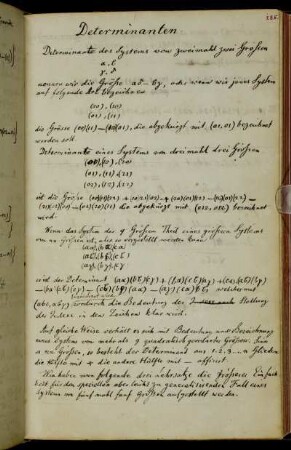 Determinanten
Determinante des Systems von zweimahl zwei Größen
α. β
γ. δ
nennen wir die Größe αδ − βγ, oder wenn wir jenes System
auf folgende Art bezeichnen
(00), (10)
(01), (11)
die Grösse (00)(11) − (10)(01), die abgekürzt mit (01.01) bezeichnet
werden soll
Determinante eines Systems von dreimahl drei Größen
(00), (10), (20)
(01), (11), (21)
(02), (12), (22)
ist die Größe
die abgekürzt mit (012, 012) bezeichnet
wird.
Wenn das System der 9 Größen Theil eines größern Systems
von Größen ist, also so vorgestellt werden kann
(aα), (bα), (cα)
(aβ), (bβ), (cβ)
(aγ), (bγ), (cγ)
wird der Determinant
(abc, αβγ) wodurch die Bedeutung der Stellung
der Indices in dem Zeichen klar wird.
Auf gleiche Weise verhält es sich mit Bedeutung und Bezeichnung
eines Systems von mehr als 9 quadratisch geordneter Größen.
n Größen, so besteht der Determinant aus 1.2.3...n Gliedern
die Hälfte mit + die andere Hälfte mit − afficirt
Wir haben nun folgende drei Lehrsätze die größerer Einfach
heit für den speciellen aber leicht zu generalisirenden Fall eines
Systems von fünf mahl fünf Größen aufgestellt werden.